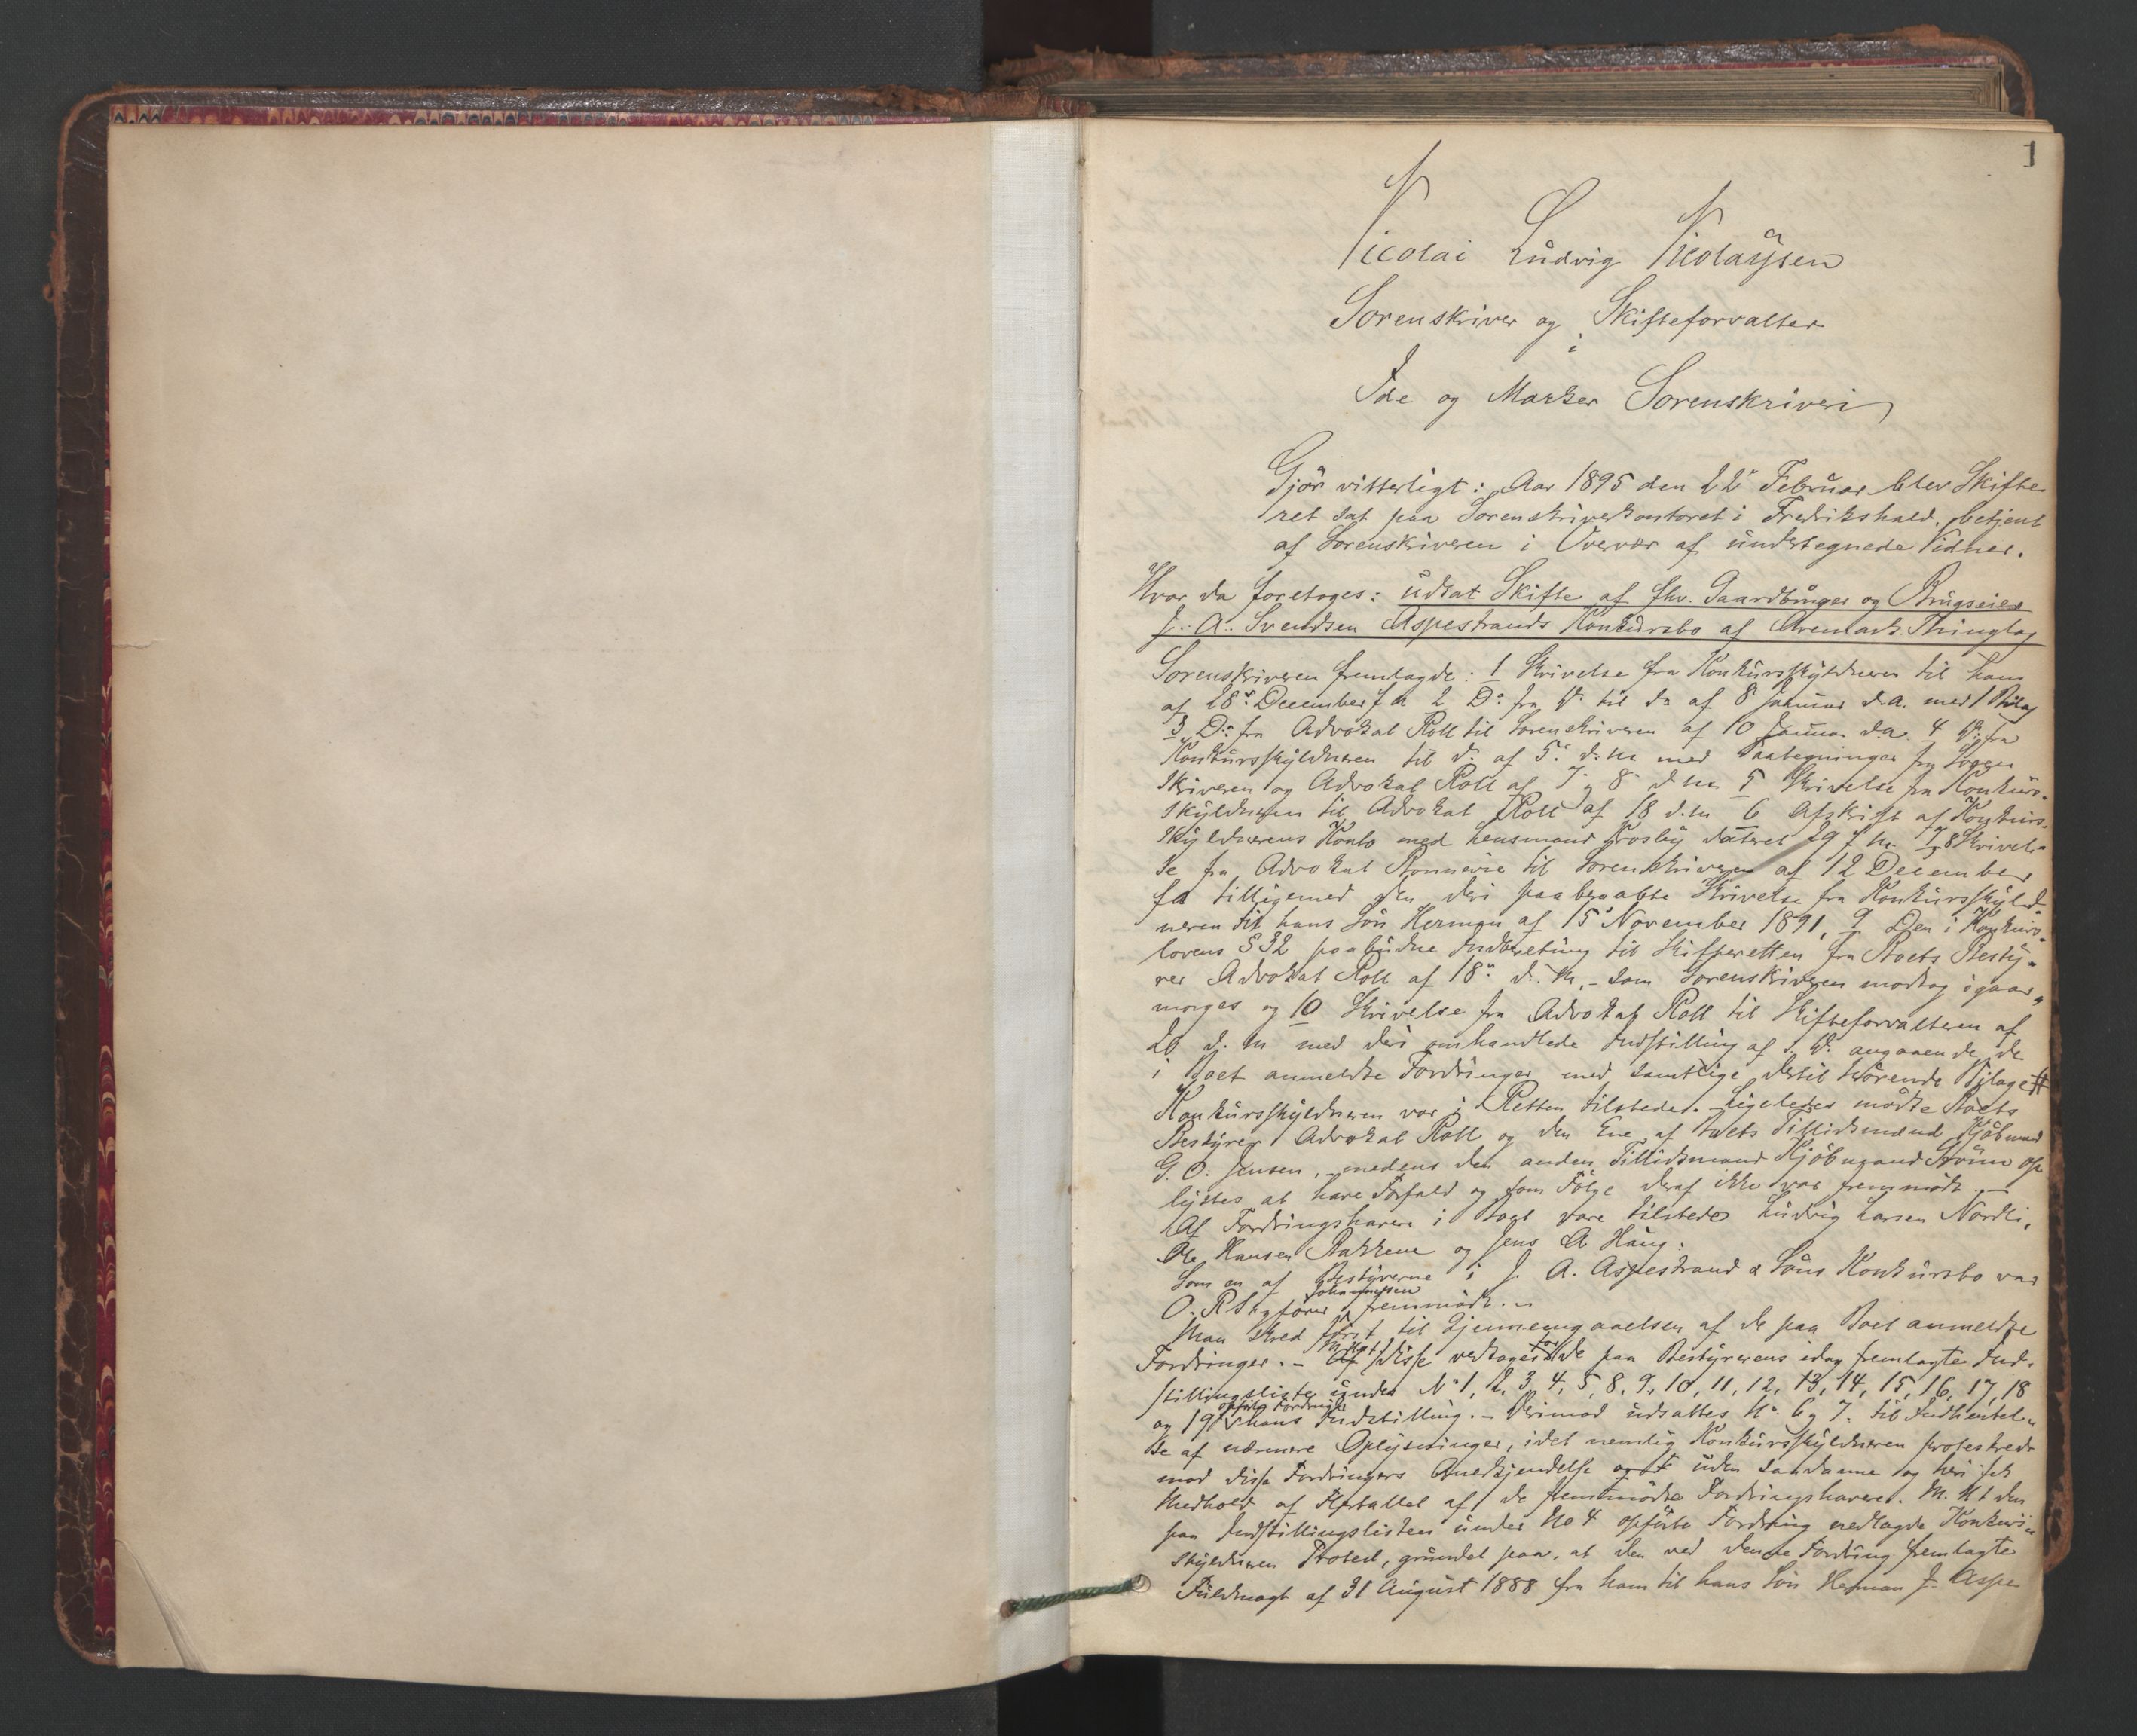 1
Nicolai Ludvig Nicolaysen
Sorenskriver og Skifteforvalter
i
Ide og Marker Sorenskriveri
Gjör vitterligt: Aar 1895 den 22' Februar blev Skifte-
ret sat paa Sorenskriverkontoret i Fredrikshald, betjent
af Sorenskriveren i Overvær af undertegnede Vidner.
Hvor da foretoges: udsat Skifte af fhv. Gaardbruger og Brugseier
J. A. Svendsen Aspestrands Konkursbo af Aremark Thinglag
Sorenskriveren fremlagde: 1 Skrivelse fra Konkursskyldneren til ham
af 28' December f. A. 2 Do fra Do til do af 8 Januar d.A. med 1 Bilag
3 Do fra Advokat Roll til Sorenskriveren af 10 Januar d.A. 4 Do fra
Konkursskyldneren til Do af 5' d.M. med Paategninger fra Soren
skriveren og Advokat Roll af 7 og 8 d.M. 5 Skrivelse fra Konkurs-
skyldneren til Advokat Roll af 18 d.M. 6 Afskrift af Konkurs-
skyldnerens Konto med Lensmand Krosby dateret 29 f.M. 7, 8 Skrivel-
se fra Advokat til Sorenskriveren af 12 December
f A tilligemed den deri paaberaabte Skrivelse fra Konkursskyld-
neren til hans Sön Herman af 15' November 1891, 9 Den i Konkurs-
lovens § 32 paabudne Indberetning til Skifteretten fra Boets Besty-
rer Advokat Roll af 18' d. M. - som Sorenskriveren modtog igaar
morges og 10 Skrivelse fra Advokat Roll til Skifteforvalteren af
20 d. M med deri omhandlede Indstilling af s. D. angaaende de
i Boet anmeldte Fordringer med samtlige dertil hörende Bilage #
Konkursskyldneren var i Retten tilstede. Ligeledes mödte Boets
Bestyrer Advokat Roll og den Ene af Boets Tillidsmænd Kjöbmand
G. O. Jensen, - medens den anden Tillidsmand Kjöbmand op
lystes at have Forfald og som Fölge deraf ikke var fremmödt. -
Af Fordringshavere i Boet vare tilstede Ludvig Larsen Nordli,
Ole Hansen Bakkene og Jens A Haug.
Som en af Bestyrerne i J. A. Aspestrand & Söns Konkursbo var
O. R Sagförer Johannessen fremmödt. -
Man skred först til Gjennemgaaelsen af de paa Boet anmeldte
Fordringer. - Af disse vedtoges de paa Bestyrerens idag fremlagte Ind-
stillingsliste under No 1, 2, 3, 4, 5, 8, 9, 10, 11, 12, 13, 14, 15, 16, 17, 18
og 19 opförte Fordringer hans Indstilling. - Derimod udsattes No. 6 og 7. til Indhentel-
se af nærmere Oplysninger, idet nemlig Konkursskyldneren protesterede
mod disse Fordringers Anerkjendelse uden saadanne og heri fik
Medhold af Flertallet af de fremmödte Fordringshavere. M. H t den
paa Indstillingslisten under No 4 opförte Fordring nedlagde Konkurs-
skyldneren Protest, grundet paa, at den ved denne Fordring fremlagte
Fuldmagt af 31 August 1888 fra ham til hans Sön Herman J. Aspe